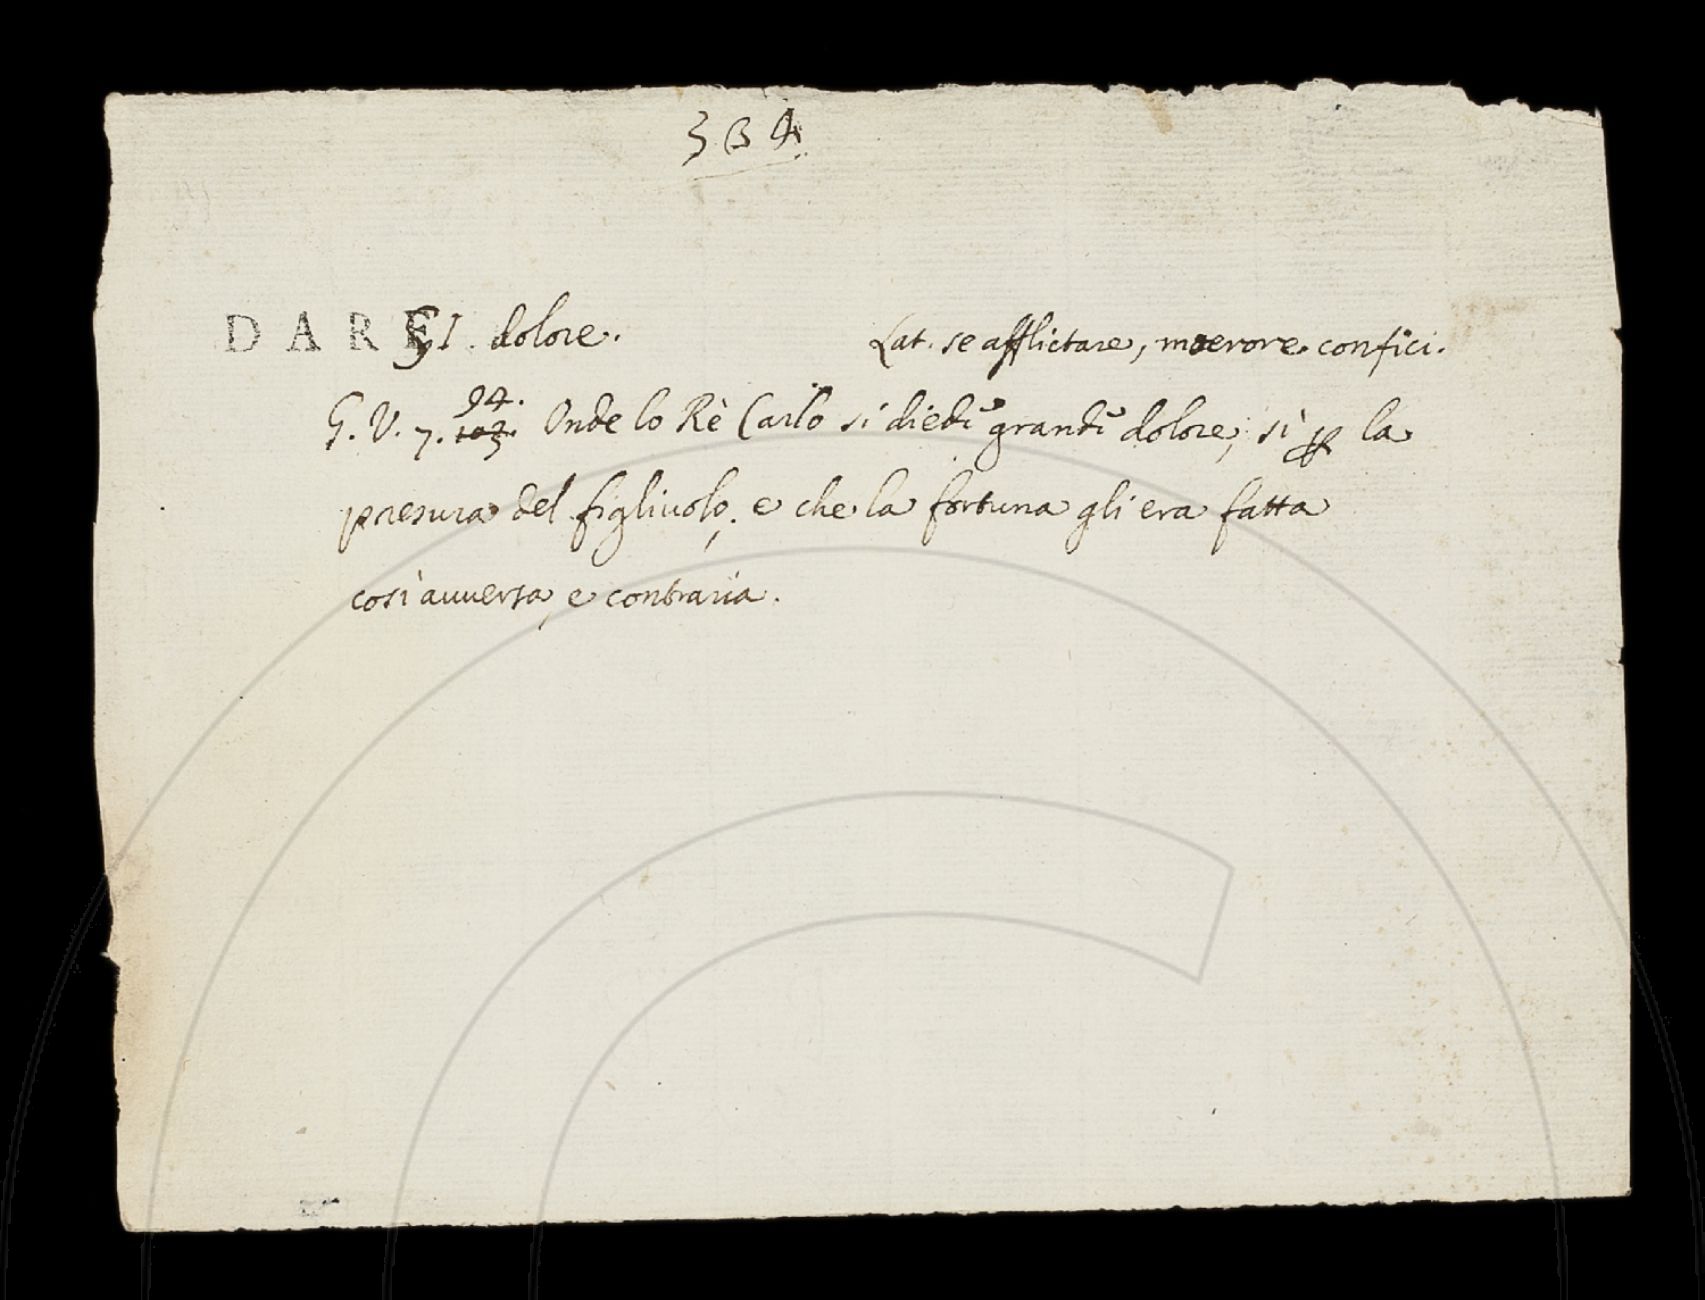 334.
DARSI dolore. Lat. se afflictare, moerore confici.
94.
G. V. 7. 103. Onde lo Rè Carlo si diede grande dolore, sì ꝑ la
presura del figliuolo, e che la fortuna gli era fatta
così auuersa, e contraria.